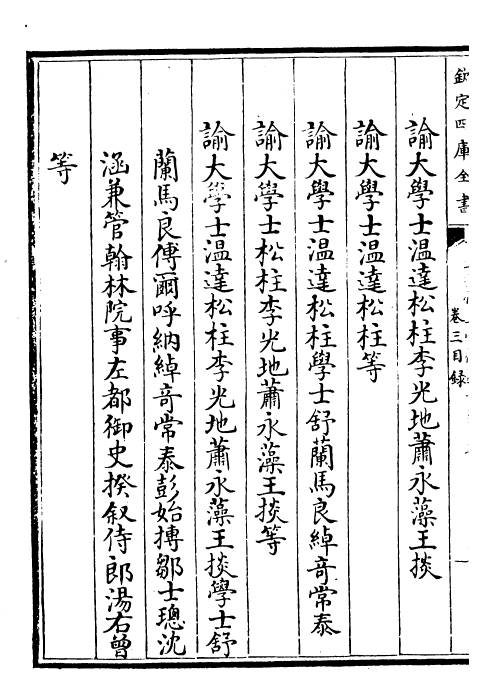 欽定四庫全書
卷三目録
諭大學士温達松柱李光地蕭永藻王掞
諭大學士温達松柱等
諭大學士温達松柱學士舒蘭馬良綽竒常泰
諭大學士松柱李光地蕭永藻王掞等
諭大學士温達松柱李光地蕭永藻王掞學士舒
蘭馬良傅爾呼納綽竒常泰彭始摶鄒士璁沈
涵兼管翰林院事左都御史揆叙侍郎湯右曾
等